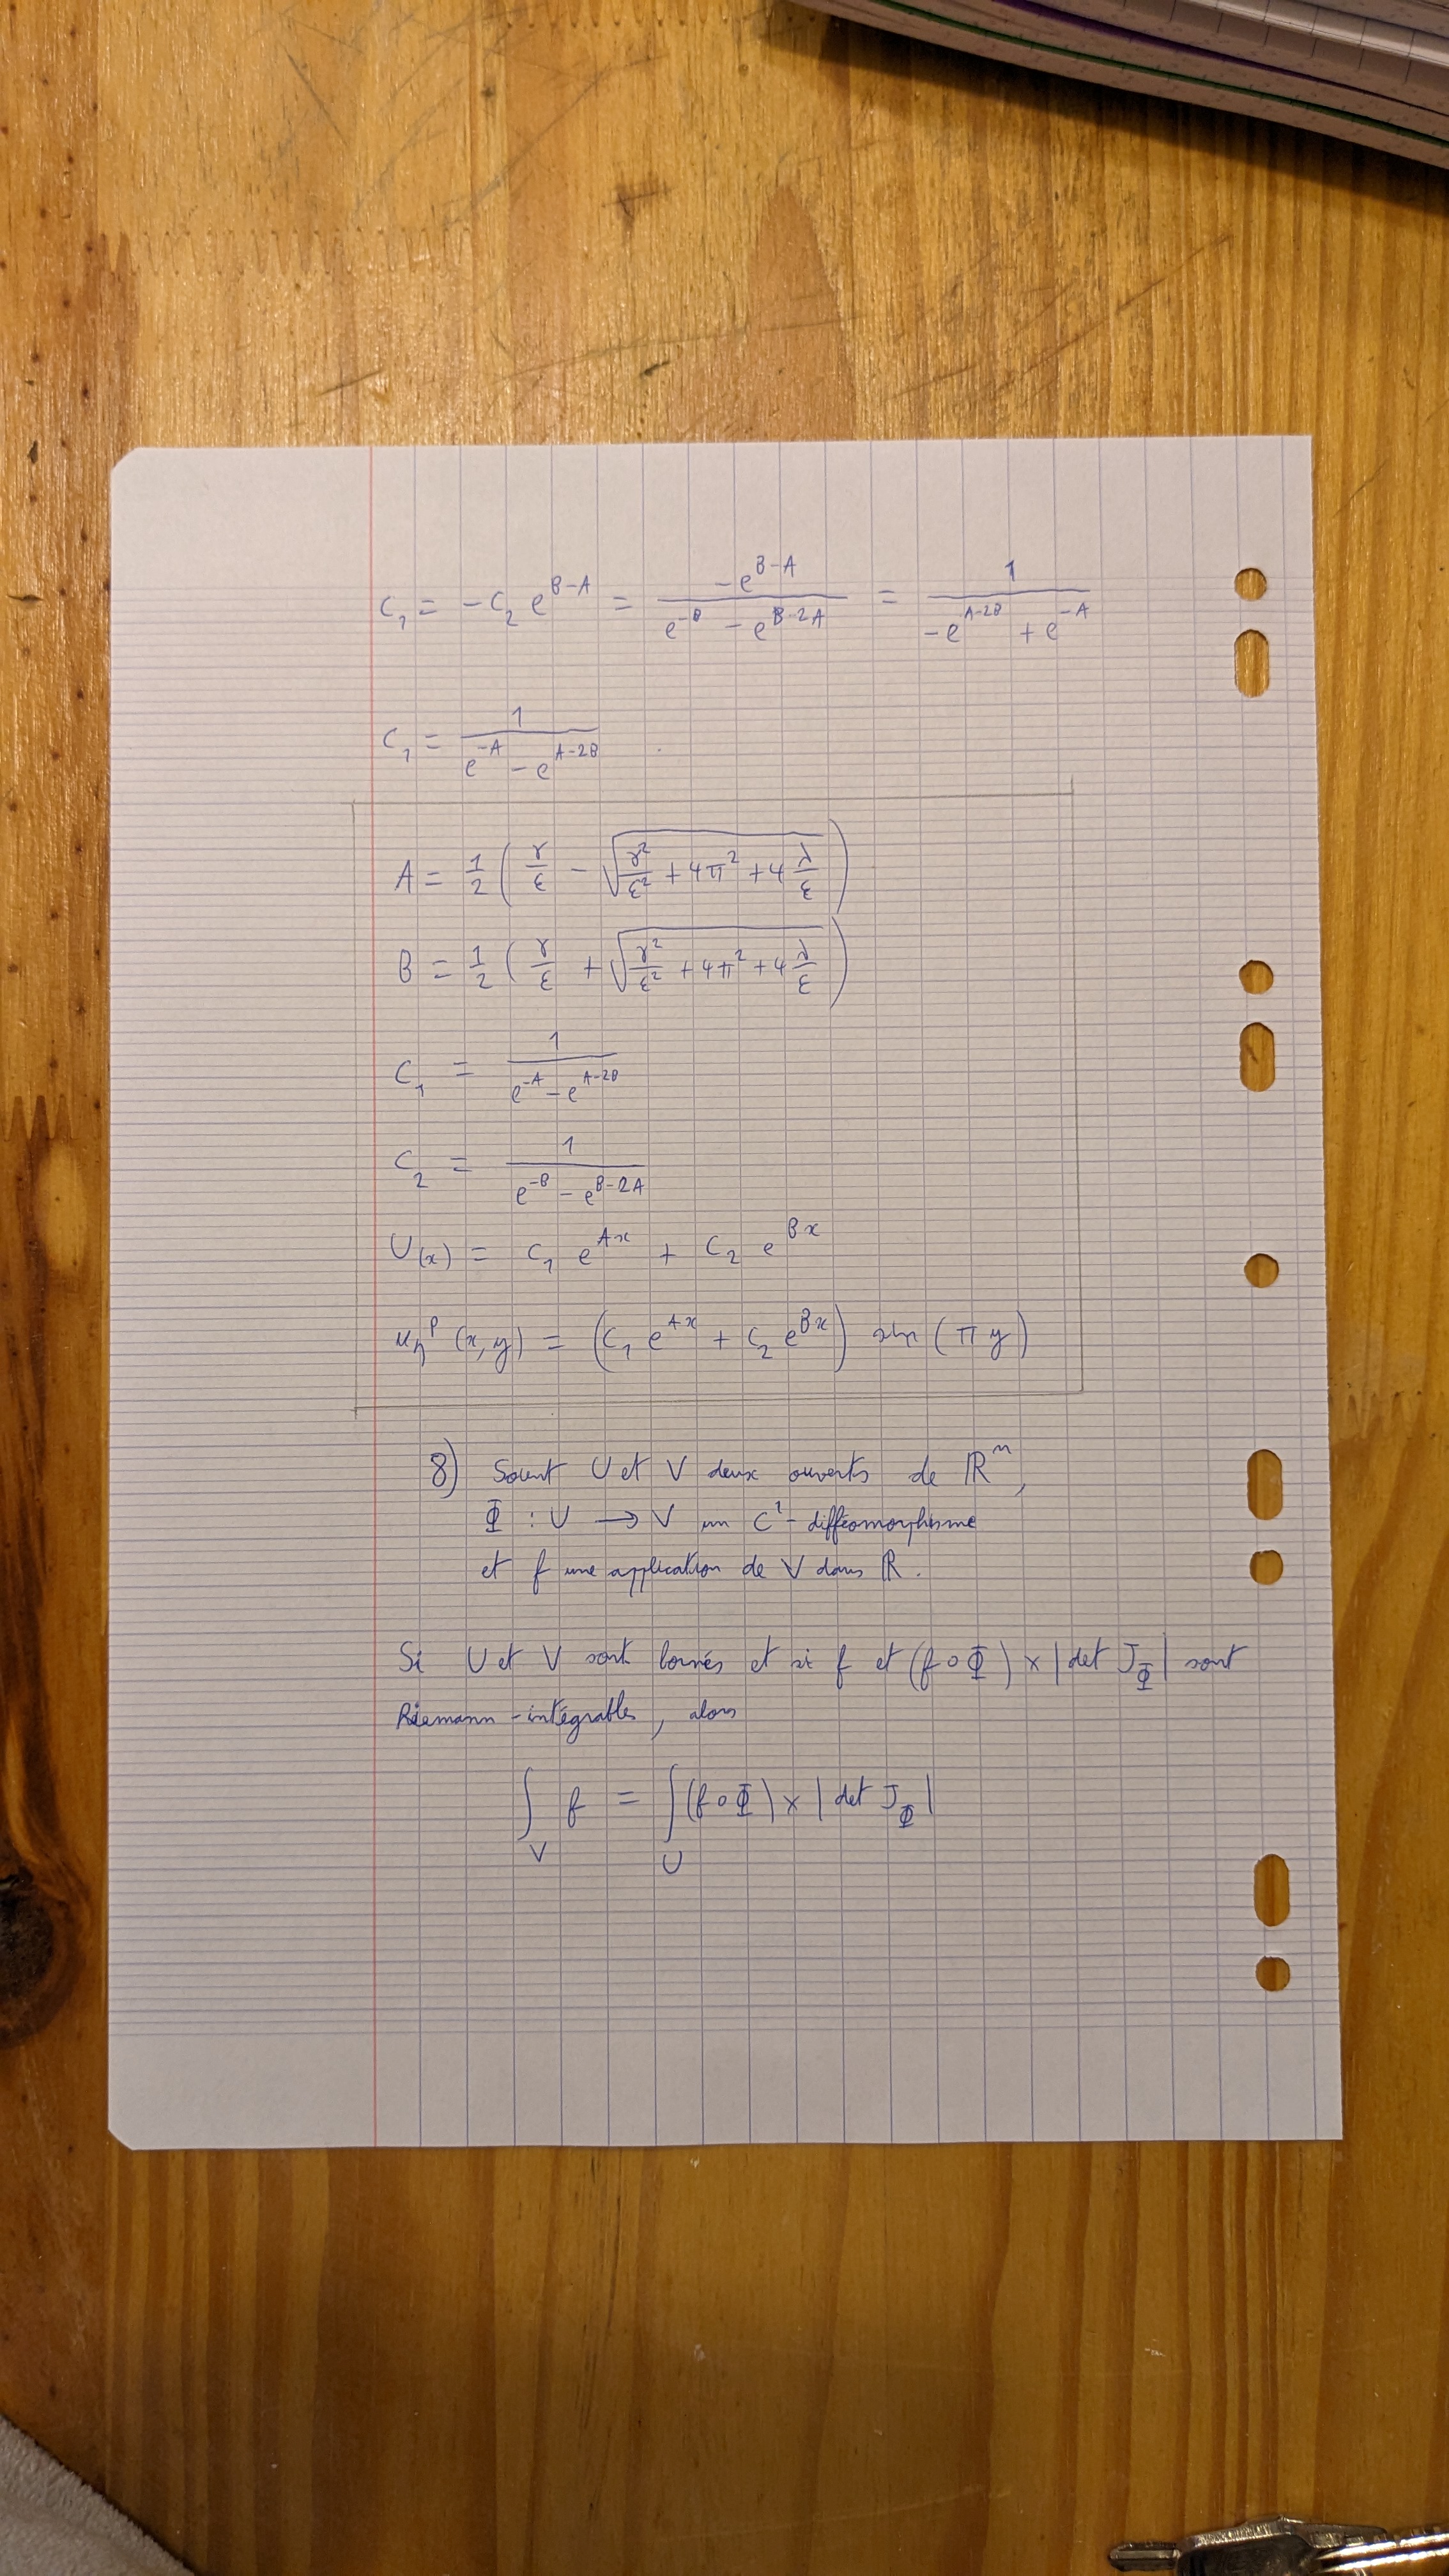 C₁ = -C₂ e^{B-A} = \frac{-e^{B-A}}{e^{-B} - e^{B-2A}} = \frac{1}{-e^{A-2B} + e^{-A}}
C₁ = \frac{1}{e^{-A} - e^{A-2B}}
A = \frac{1}{2} ( \frac{γ}{ε} - \sqrt{\frac{γ²}{ε²} + 4π² + 4\frac{λ}{ε}} )
B = \frac{1}{2} ( \frac{γ}{ε} + \sqrt{\frac{γ²}{ε²} + 4π² + 4\frac{λ}{ε}} )
C₁ = \frac{1}{e^{-A} - e^{A-2B}}
C₂ = \frac{1}{e^{-B} - e^{B-2A}}
U(x) = C₁ e^{Ax} + C₂ e^{Bx}
u_η^P (x,y) = (C₁ e^{Ax} + C₂ e^{Bx}) sin (π y)
8) Soient U et V deux ouverts de ℝ^n,
Φ : U → V un C¹-difféomorphisme
et f une application de V dans ℝ.
Si U et V sont bornés et si f et (f ∘ Φ) × |det J_Φ| sont
Riemann-intégrables, alors
∫_V f = ∫_U (f ∘ Φ) × |det J_Φ|